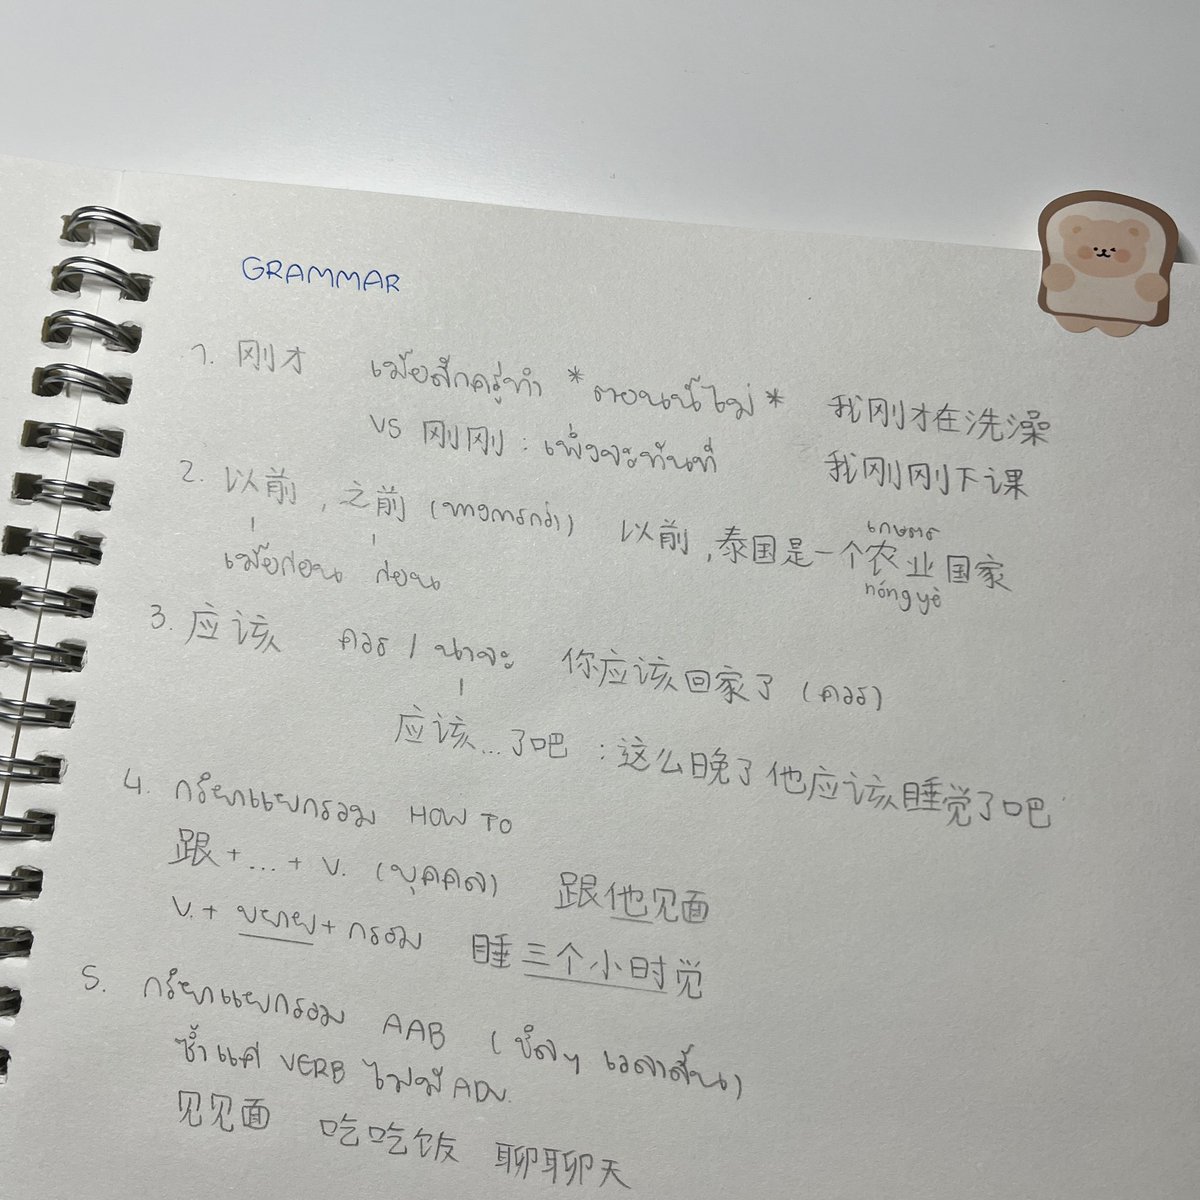 GRAMMAR
1. 刚才 เมื่อสักครู่ทำ *ตอนนี้ไม่* 我刚才在洗澡
vs 刚刚 : เพิ่งจะทันที 我刚刚下课
2. 以前 , 之前 (ทางการกว่า) 以前 ,泰国是一个农业国家
เกษตร
nóngyè
เมื่อก่อน ก่อน
3. 应该 ควร / น่าจะ 你应该回家了 (ควร)
应该...了吧 : 这么晚了他应该睡觉了吧
4. กริยาแยกกรรม HOW TO
跟+...+ V. (บุคคล) 跟他见面
V.+ ขยาย + กรรม 睡三个小时觉
5. กริยาแยกกรรม AAB ( ชิลๆ เวลาสั้น)
ซ้ำแค่ VERB ไม่มี ADV.
见见面 吃吃饭 聊聊天